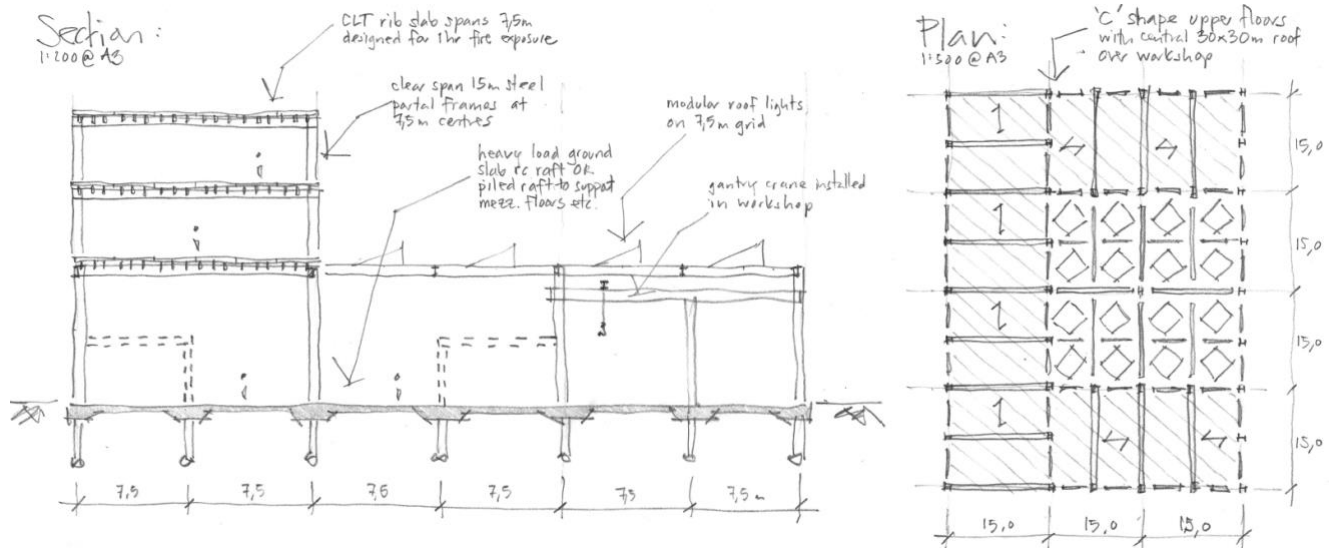 Section:
1:200@A3
CLT rib slab spans 7,5m
designed for 1hr fire exposure
clear span 15m steel
portal frames at
7,5m centres
heavy load ground
slab rc raft OR
piled raft to support
mezz. floors etc.
modular roof lights
on 7,5m grid
gantry crane installed
in workshop
7,5
7,5
7,5
7,5
7,5
7,5m
Plan:
1:500@A3
'C' shape upper floors
with central 30x30m roof
over workshop
15,0
15,0
15,0
15,0
15,0
15,0
15,0